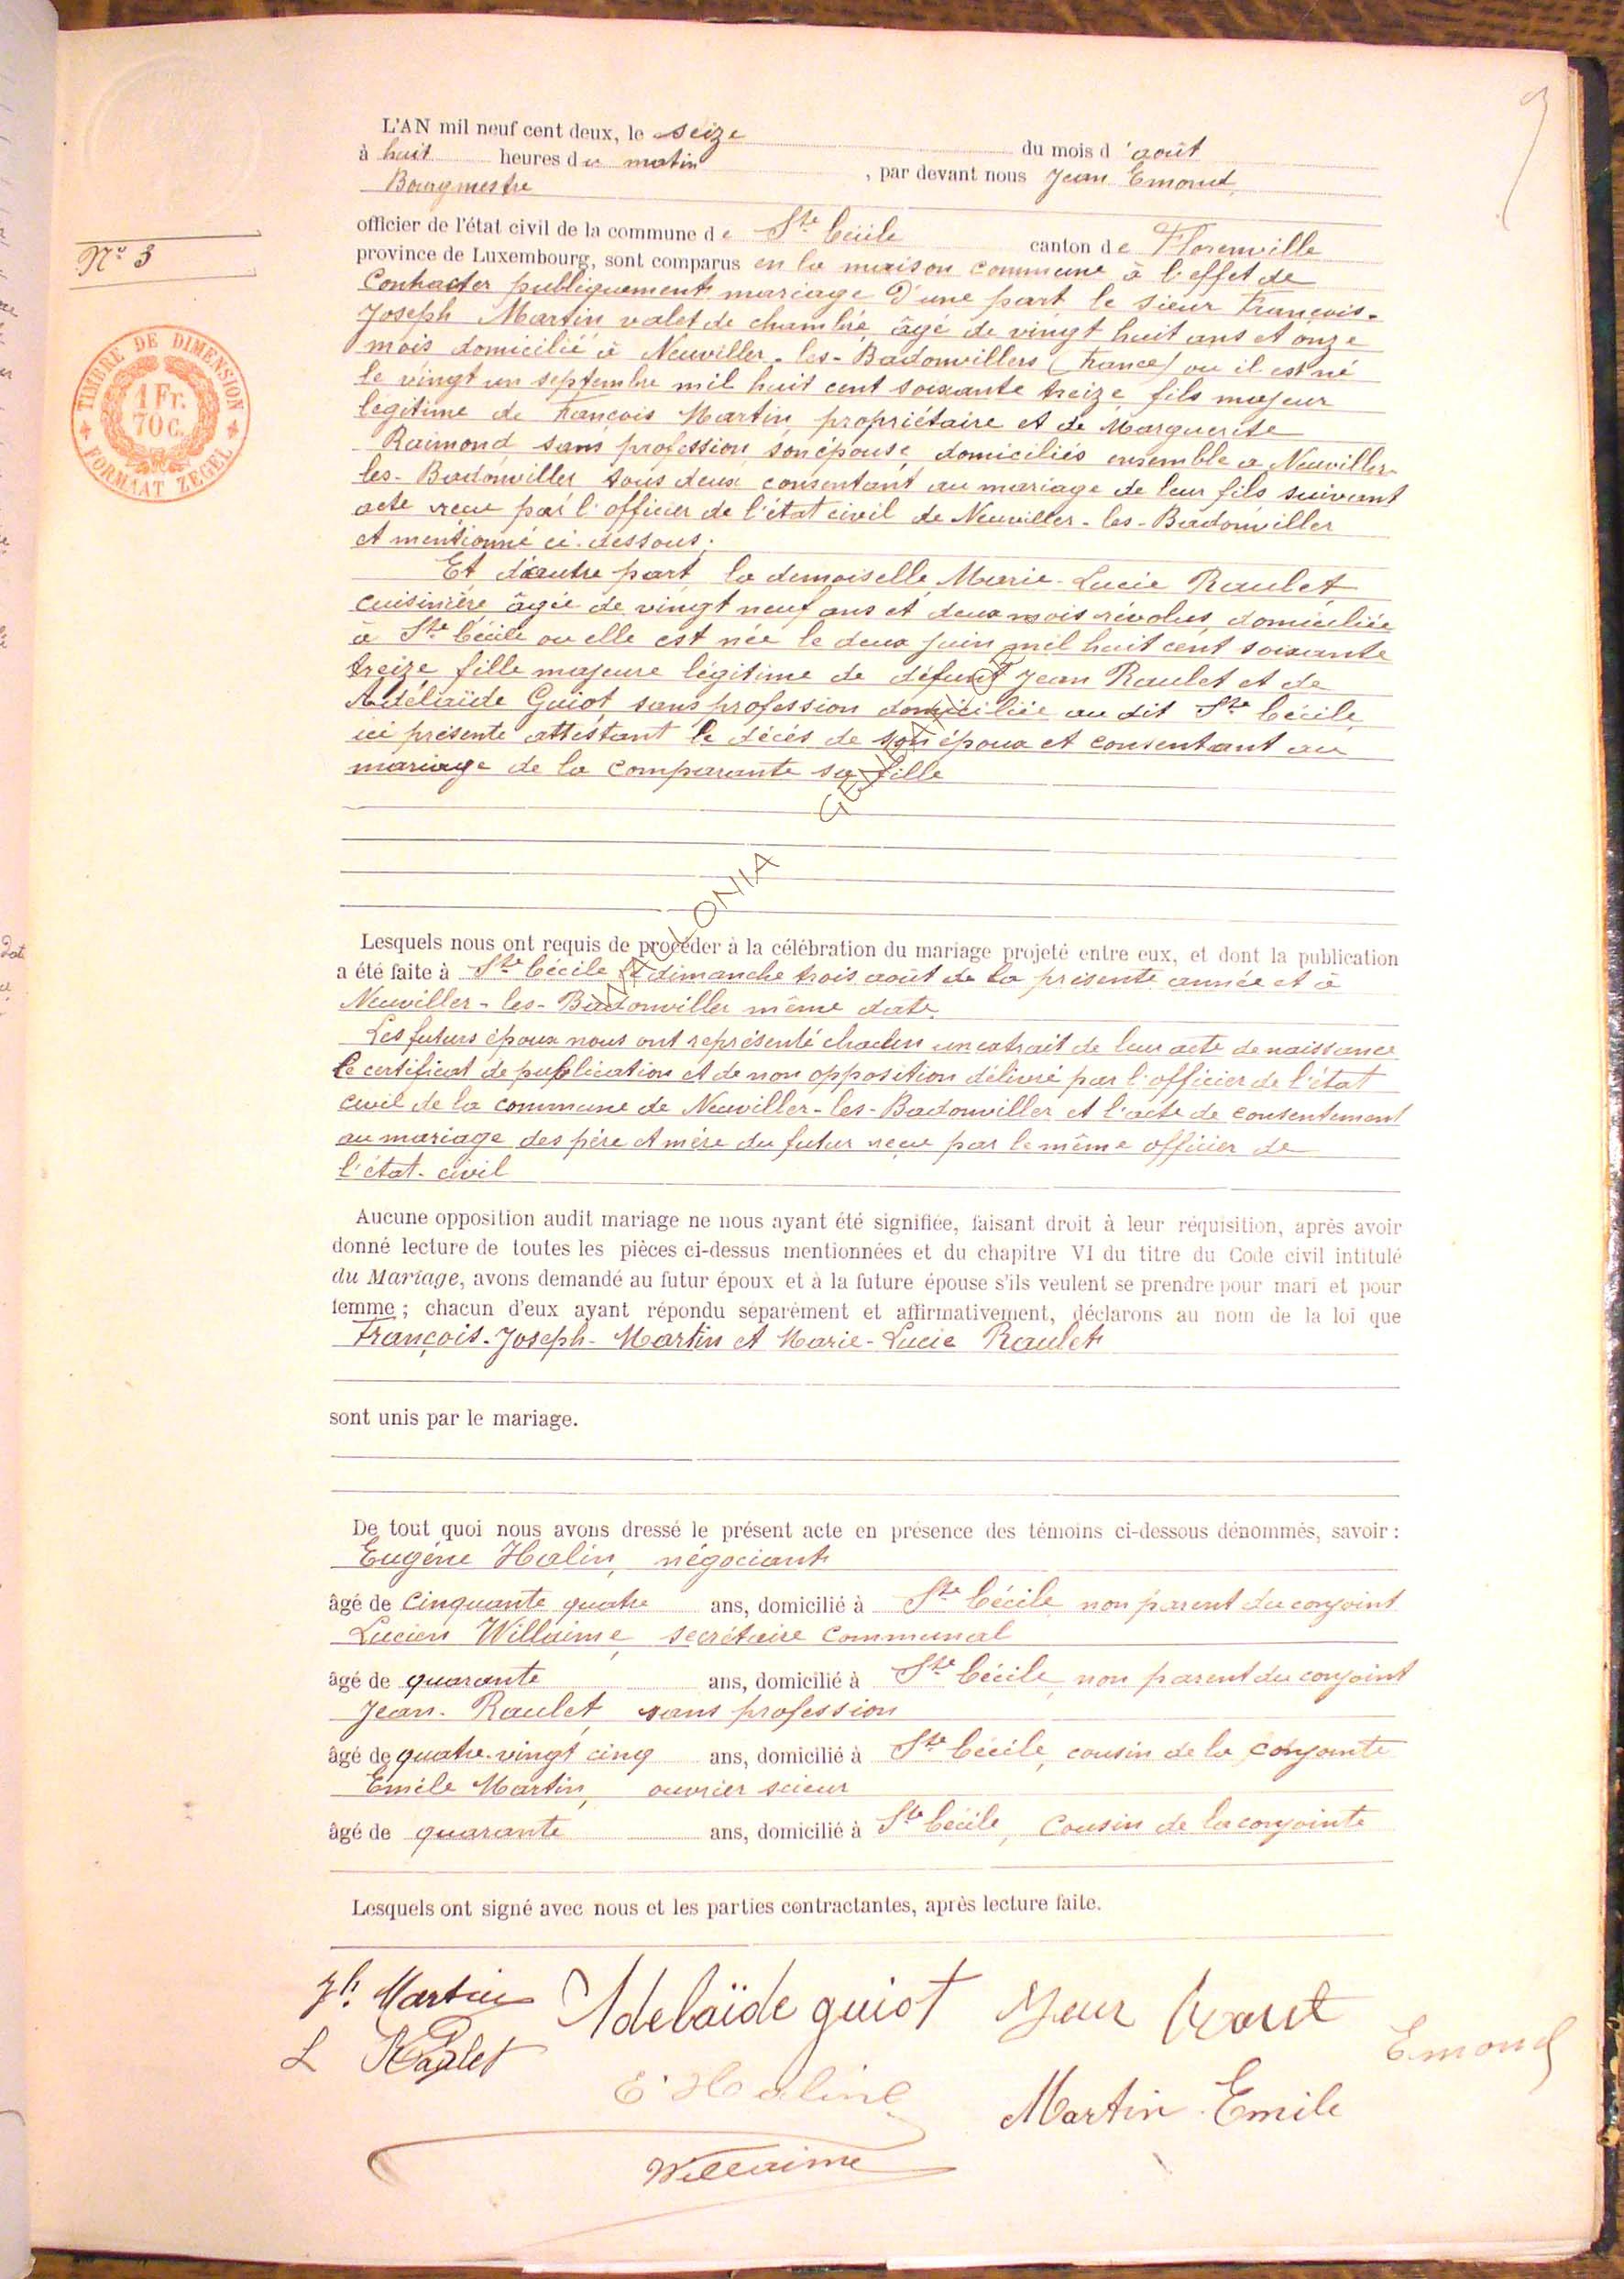 L'AN mil neuf cent deux, le seize du mois d'août
à huit heures du matin, par devant nous Jean Emond,
Bourgmestre
officier de l'état civil de la commune de Ste Cécile canton de Florenville
province de Luxembourg, sont comparus en la maison commune à l'effet de
Contracter publiquement mariage D'une part le sieur François-
Joseph Martin valet de chambre, âgé de vingt huit ans et onze
mois domicilié à Neuviller-les-Badonvillers (France) ou il est né
le vingt un septembre mil huit cent soixante treize fils majeur
legitime de François Martin, propriétaire et de Marguerite
Raimond sans profession son épouse, domiciliés ensemble a Neuviller-
les-Badonviller tous deux consentant au mariage de leur fils suivant
acte reçu par l'officier de l'état civil de Neuviller-les-Badonviller
et mentionné ci-dessous.
Et d'autre part, la demoiselle Marie-Lucie Raulet,
cuisinière âgée de vingt neuf ans et deux mois révolus, domiciliée
à Ste Cécile ou elle est née le deux juin mil huit cent soixante
treize, fille majeure légitime de défunt Jean Raulet et de
Adélaïde Guiot sans profession domiciliée au dit Ste Cécile
ici présente attestant le décès de son époux et consentant au
mariage de la comparante sa fille
Lesquels nous ont requis de procéder à la célébration du mariage projeté entre eux, et dont la publication
a été faite à Ste Cécile le dimanche trois août de la présente année et à
Neuviller-les-Badonviller même date.
Les futurs époux nous ont représenté chacun un extrait de leur acte de naissance
le certificat de publication et de non opposition délivré par l'officier de l'état
civil de la commune de Neuviller-les-Badonviller et l'acte de consentement
au mariage des père et mère du futur reçu par le même officier de
l'état-civil
Aucune opposition audit mariage ne nous ayant été signifiée, faisant droit à leur réquisition, après avoir
donné lecture de toutes les pièces ci-dessus mentionnées et du chapitre VI du titre du Code civil intitulé
du Mariage, avons demandé au futur époux et à la future épouse s'ils veulent se prendre pour mari et pour
femme ; chacun d'eux ayant répondu séparément et affirmativement, déclarons au nom de la loi que
François-Joseph-Martin et Marie-Lucie Raulet
sont unis par le mariage.
De tout quoi nous avons dressé le présent acte en présence des témoins ci-dessous dénommés, savoir :
Eugène Halin, négociant
âgé de cinquante quatre ans, domicilié à Ste Cécile non parent du conjoint
Lucien Willaime, secrétaire communal
âgé de quarante ans, domicilié à Ste Cécile, non parent du conjoint
Jean-Raulet, sans profession
âgé de quatre-vingt cinq ans, domicilié à Ste Cécile, cousin de la conjointe
Emile Martin, ouvrier scieur
âgé de quarante ans, domicilié à Ste Cécile, Cousin de la conjointe
Lesquels ont signé avec nous et les parties contractantes, après lecture faite.
Jh. Martin Adelaïde guiot Jean
L Raulet Emond
E. Halin Martin Emile
Willaime
No 3
TIMBRE DE DIMENSION
1 Fr.
70 C.
FORMAAT ZEGEL